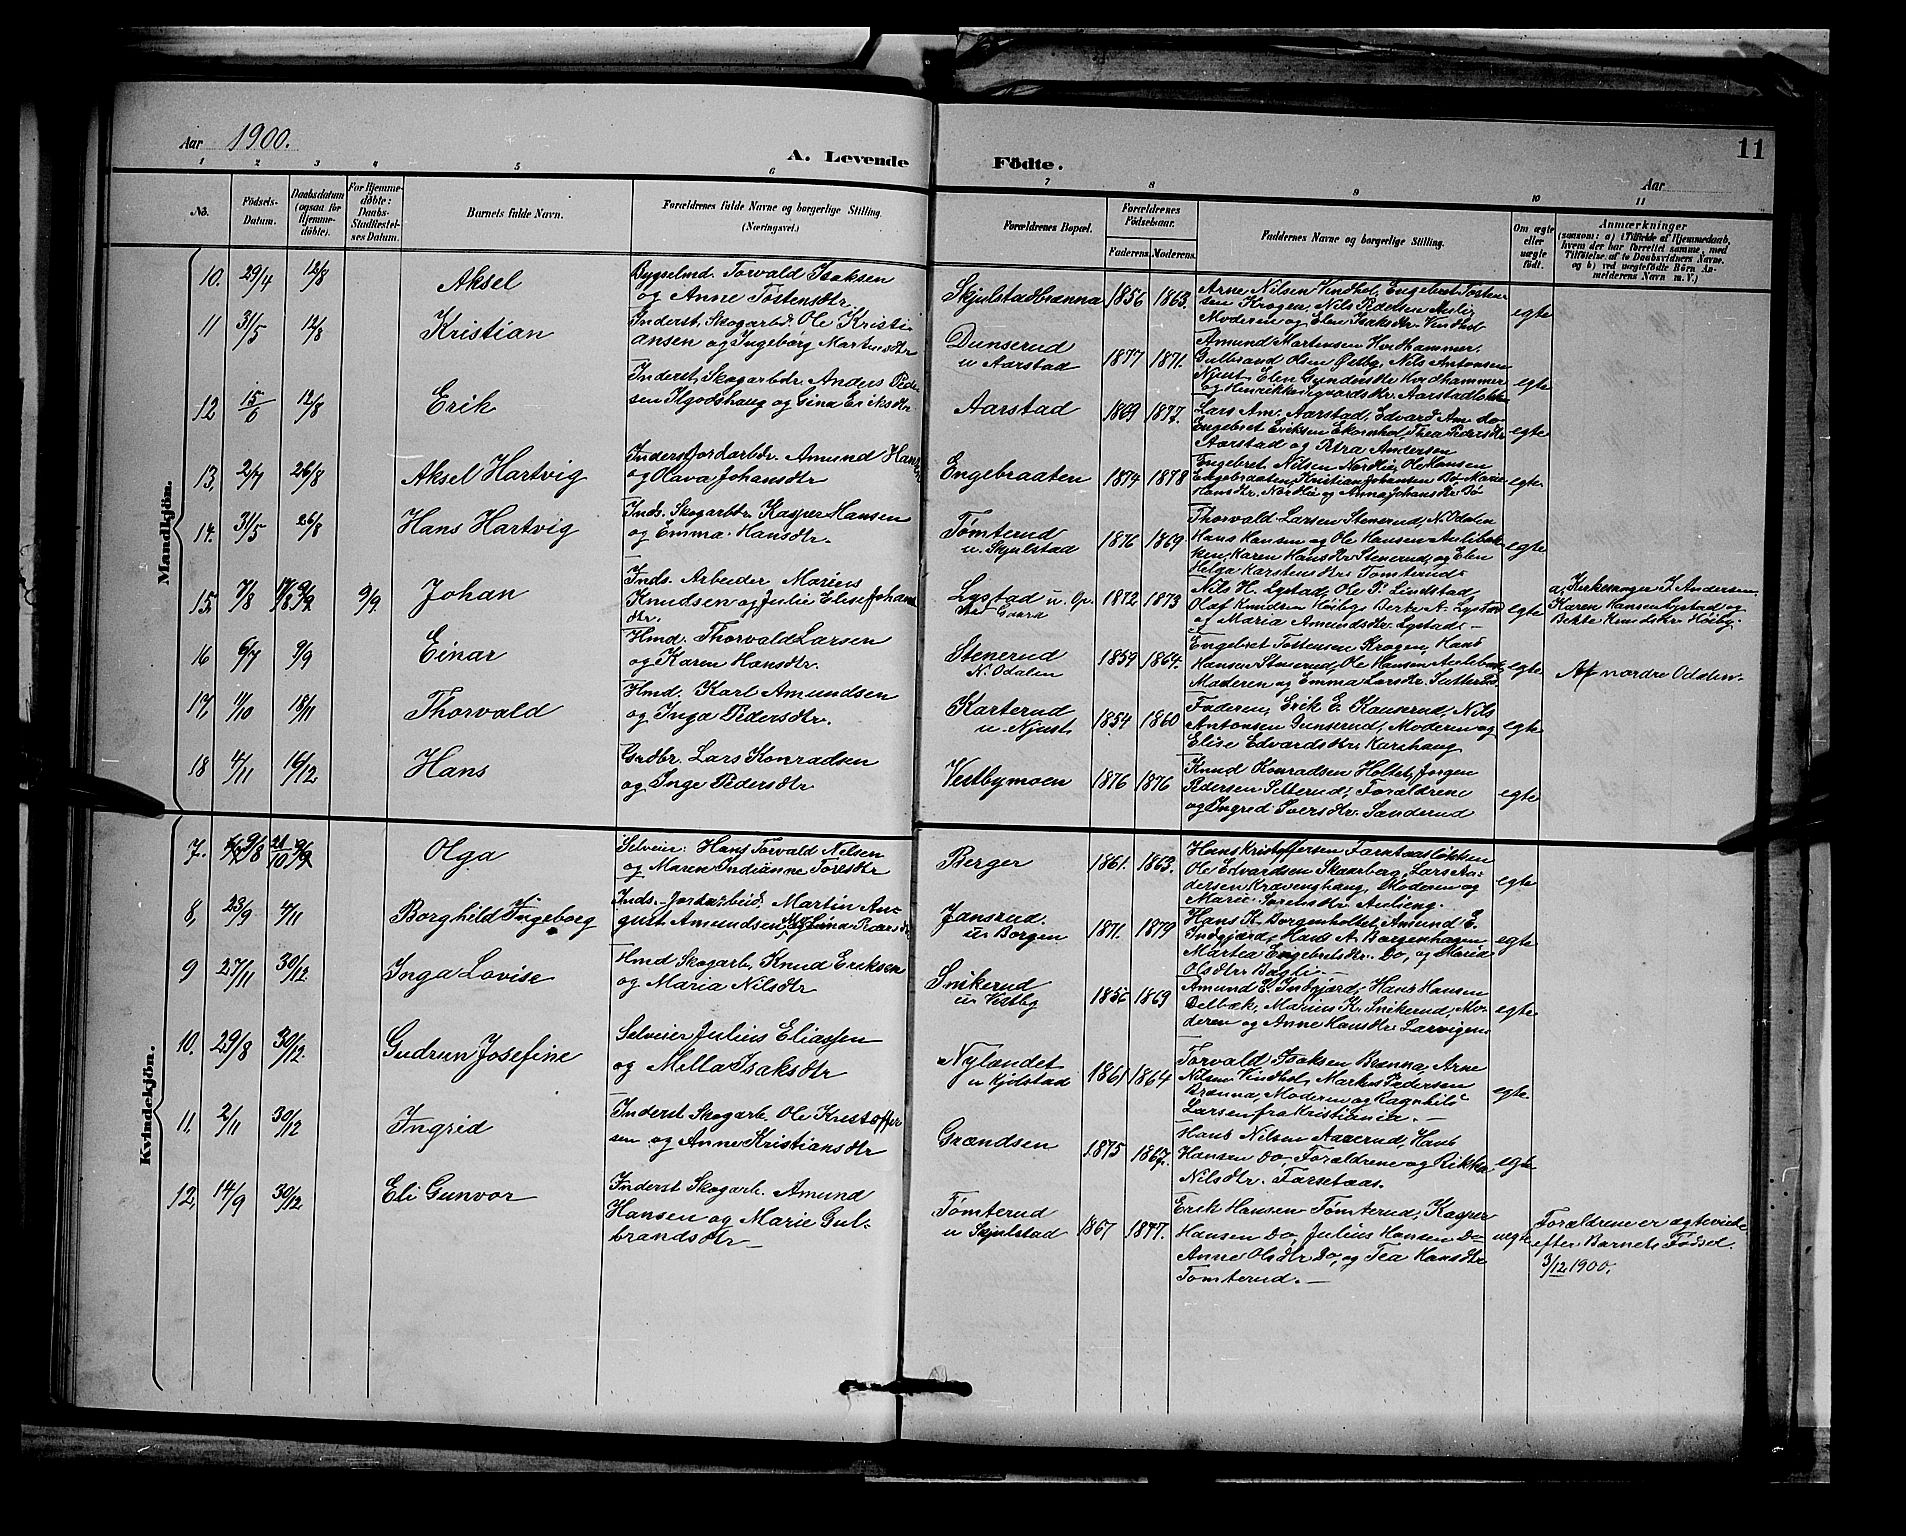 Aar 1900.
A. Levende Födte.
11
Aar
1 2 3 4 5 6 7 8 9 10 11
No.
Födsels-Datum.
Daabsdatum (ogsaa for Hjemme-döbte).
For Hjemme-döbte: Daabs-Stadfæstel-ses Datum.
Barnets fulde Navn.
Forældrenes fulde Navne og borgerlige Stilling. (Næringsvei.)
Forældrenes Bopæl.
Forældrenes Födselsaar.
Faderens. Moderens.
Faddernes Navne og borgerlige Stilling.
Om ægte eller uægte födt.
Anmærkninger
(saasom: a) i Tilfælde af Hjemmedaab, hvem der har forrettet samme, med Tilföielse af to Daabsvidners Navne, og b) ved uægtefödte Börn Anmelderens Navn m. V.)
Mandkjön.
10. 29/4 12/8 Aksel
Bygselmd. Torvald Isaksen
og Anne Tostensdtr.
Skjulstadbrænna 1856 1863.
Arne Nilsen Vindhol, Engebret Tosten-
sen Krogen, Nils Pedersen Aulie
Moderen og Elen Isaksdtr. Vindhol
egte
11 31/5 12/8 Kristian
Inderst, Skogarbd. Ole Kristi-
ansen og Ingeborg Martinsdtr
Dunserud
u. Aarstad
1877 1871.
Amund Martensen Hvidhammer.
Gulbrand Olsen Østby, Nils Antonsen
Njust, Elen Gundersdtr Hvidhammer
og Henrikke Sigvardsdtr. Aarstadløkken
egte
12 15/6 12/8 Erik
Inderst, Skogarbdr. Anders Peder
sen Ilgodshaug og Gina Eriksdtr
Aarstad 1869 1877.
Lars Am. Aarstad, Edvard Am. do
Engebret Eriksen Ekornhol, Thea Pedersdtr
Aarstad og Petra Andersen
egte
13, 2/7 26/8 Aksel Hartvig
Inderst jordarbdr. Amund Hansen
og Olava Johansdtr
Engebraaten 1874 1878
Engebret Nilsen Nordlie, Ole Hansen
Engebraaten, Kristian Johansen Bø Marie
Hansdtr. Nordlie og Anna Johansdtr Bø
egte.
14. 31/5 26/8 Hans Hartvig
Inds. Skogarbdr. Kasper Hansen
og Emma Hansdtr.
Tømterud
u. Skjulstad
1876 1869
Thorvald Larsen Stenerud, N. Odalen
Hans Hansen og Ole Hansen Aulibak-
ken, Karen Hansdtr Stenerud, og Elen
Helga Karstensdtr. Tomterud.
egte
15, 7/8 17/8 9/9 9/9. Johan
Inds. Arbeider Marius
Knudsen og Julie Elise Johans
dtr.
Lystad u. Gr.
1872 1873
Nils H. Lystad, Ole P. Lindstad,
Olaf Knudsen Høiby, Berte A. Lystad
og Maria Amundsdtr. Lystad.
egte
a, Kirkesanger I. Andersen
Karen Hansen Lystad og
Berte Knudsdtr Høiby.
16 6/7 9/9 Einar
Hmd. Thorvald Larsen
og Karen Hansdtr.
Stenerud
N. Odalen
1859 1864.
Engebret Tostensen Krogen, Hans
Hansen Stenerud, Ole Hansen Aulibak
Moderen og Emma Larsdtr.
egte
Af nordre Odalen.
17, 11/10 18/11 Thorvald
Hmd. Karl Amundsen
og Inga Pedersdtr.
Karterud
u. Njust.
1854 1860
Faderen, Erik E. Kauserud, Nils
Antonsen Gunserud, Moderen og
Elise Edvardsdtr Karihaug
egte
18 4/11 16/12. Hans
Grdbr. Lars Konradsen
og Inge Pedersdtr
Vestbymoen 1876 1876
Knud Konradsen Holtet, Jørgen
Pedersen Setterud, Forældrene
og Ingrid Iversdtr. Sanderud
egte
Kvindekjön.
7. 9/8 21/10 9/9 Olga
Selveier. Hans Torvald Nilsen
og Maren Indianne Toresdtr
Berger 1861. 1863.
Hans Kristoffersen Farstaasløkken
Ole Edvardsen Skaarberg, Lars An-
dersen Kravenghaug, Moderen og
Marie Sorensdtr Aulieng.
egte
8, 23/9 4/11 Borghild Ingeborg
Inds. Jordarbeid. Martin Au-
gust Amundsen og Lina Roarsdtr
Jansrud.
u. Borgen
1871. 1879
Hans K. Borgenholtet, Amund E.
Indgjærd, Hans A. Borgenhagen
Martea Engebretsdtr. Do, og Maria
Olsdtr Bagli.
egte
9 27/11 30/12. Inga Lovise
Hmd Skogarb. Knud Eriksen
og Maria Nilsdtr
Snikerud
u. Vestby
1856 1869
Amund E. Indgjærd, Hans Hansen
Delbæk, Marius K. Snikerud, Mo-
deren og Anne Hansdtr. Larvigen
egte
10. 29/8 30/12. Gudrun Josefine
Selveier Julius Eliassen
og Milla Isaksdtr
Nylandet
u Kjølstad
1861 1864
Torvald Isaksen Brænna, Arne
Nilsen Vindhol, Markus Pedersen
Brænna, Moderen og Ragnhild
Larsen fra Kristiania.
egte
11, 2/11 30/12 Ingrid
Inderst Skogarb. Ole Kristoffer
sen og Anne Kristiansdtr
Grændsen 1875 1867.
Hans Nilsen Aaserud, Hans
Hansen do, Forældrene og Rikka
Nilsdtr. Farsetaas.
egte
12, 14/9 30/12. Eli Gunvor
Inderst Skogarb. Amund
Hansen og Marie Gul-
brandsdtr
Tømterud
u Skjulstad
1867 1847.
Erik Hansen Tømterud, Kasper
Hansen Do, Julius Hansen Do
Anne Olsdtr Do, og Tea Hansdtr
Tomterud.
uegte
Forældrene er ægteviede
efter Barnets Fødsel.
3/12 1900.